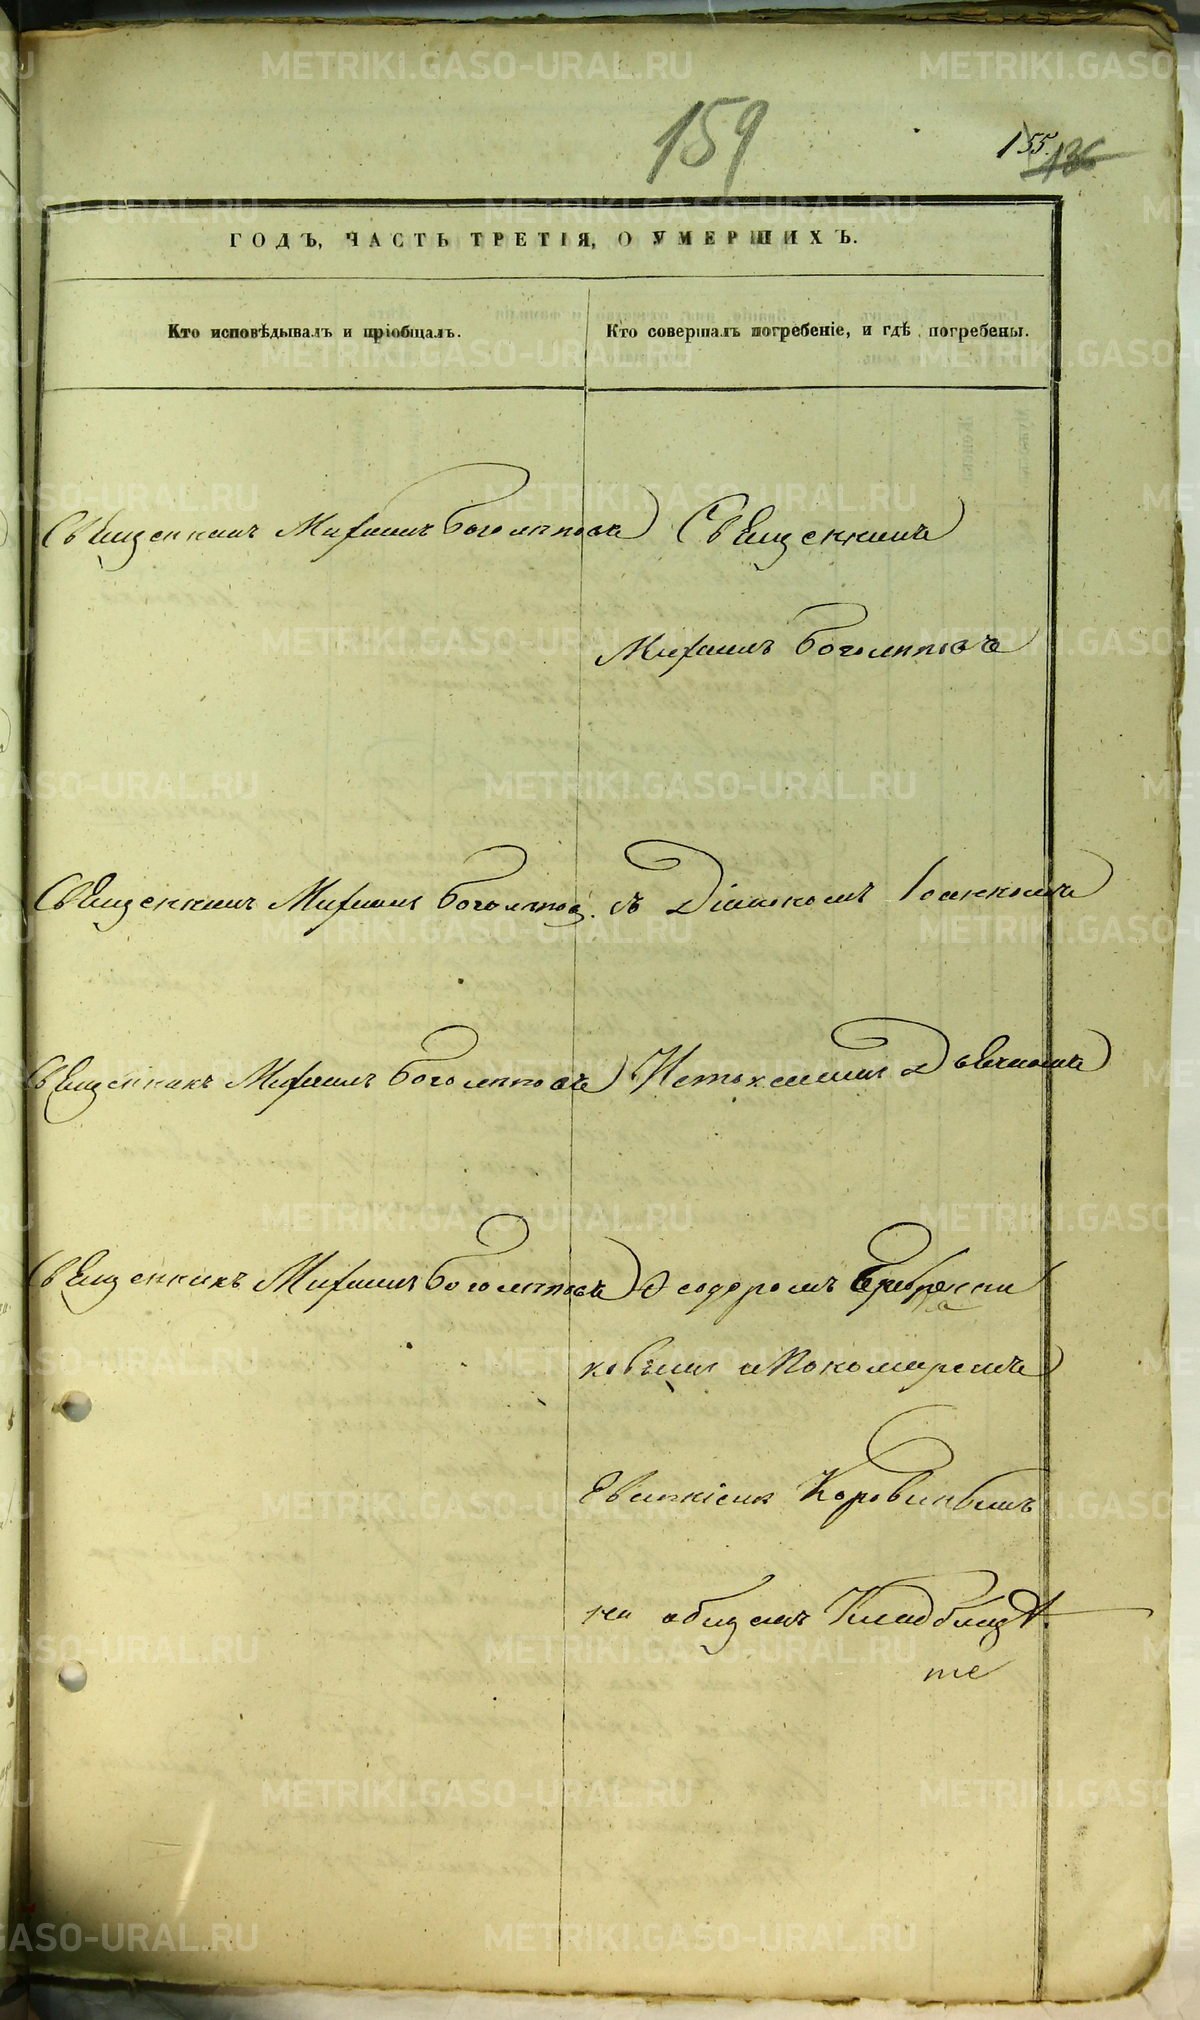 159
155. 136
ГОДЪ, ЧАСТЬ ТРЕТІЯ, О УМЕРШИХЪ.
Кто исповѣдывалъ и пріобщалъ.
Кто совершалъ погребеніе, и гдѣ погребены.
Священникъ Михаилъ Боголѣповъ
Священникъ
Михаилъ Боголѣповъ
Священникъ Михаилъ Боголѣпов.
съ Діакономъ Іоанномъ
Священникъ Михаилъ Боголѣповъ
Священникъ Михаилъ Боголѣповъ
Ѳеодоромъ
ковымъ и Пономаремъ
Коровинымъ
на общемъ Кладбищѣ.
METRIKI.GASO-URAL.RU